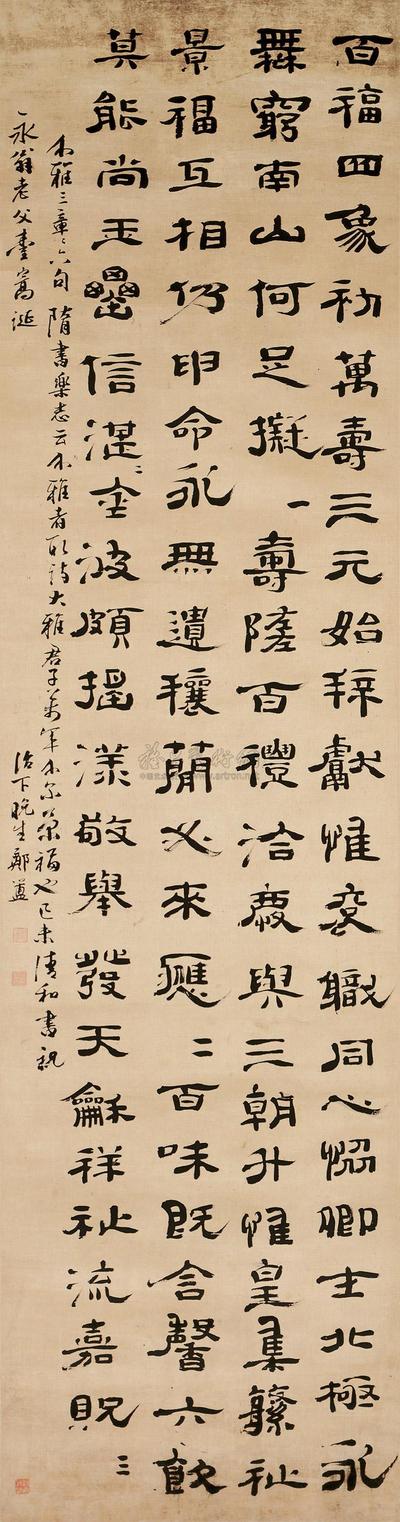 百福四象初萬壽三元始拜獻惟袞職同心協卿士北極永
無窮南山何足擬一壽隨百禮洽慶與三朝升惟皇集繁祉
景福互相仍申命永無遺穰簡必來應二百味既含馨六飲
莫能尚玉罍信湛〻金波頗搖漾敬舉發天龢祥祉流嘉貺三
介雅三章〻六句 隋書樂志云介雅者取詩大雅君子萬年介爾景福也己未清和書祝
永翁老父臺嵩誕
治下晚生鄭簠